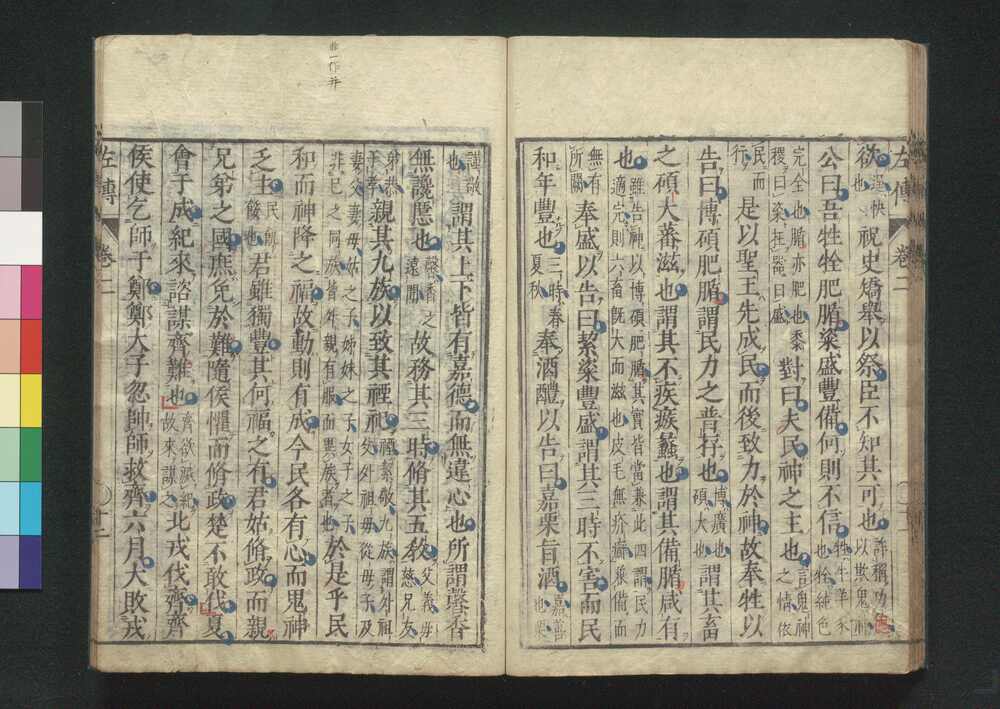 左傳 卷二
欲逞快也祝史矯舉以祭臣不知其可也詐稱功以欺鬼神
公曰吾牲牷肥腯粢盛豐備何則不信牲牛羊豕也牷純色
完全也腯亦肥也黍稷曰粢在器曰盛對曰夫民神之主也言鬼神之情依
民而行是以聖王先成民而後致力於神故奉牲以
告曰博碩肥腯謂民力之普存也博廣也碩大也謂其畜
之碩大蕃滋也謂其不疾瘯蠡也謂其備腯咸有
也雖告神以博碩肥腯其實皆當兼此四謂民力適完則六畜既大而滋也皮毛無疥癬兼備而
無有所闕奉盛以告曰絜粢豐盛謂其三時不害而民
和年豐也三時春夏秋奉酒醴以告曰嘉栗旨酒嘉善也栗
謹敬也謂其上下皆有嘉德而無違心也所謂馨香
無讒慝也馨香之遠聞故務其三時脩其五敎父義母慈兄友
弟恭子孝親其九族以致其禋祀禋絜敬九族謂外祖父外祖母從母子及
妻父妻母姑之子姊妹之子女子之子非己之同族皆外親有服而異族者也於是乎民
和而神降之福故動則有成今民各有心而鬼神
乏主民飢餒也君雖獨豐其何福之有君姑脩政而親
兄弟之國庶免於難隨侯懼而脩政楚不敢伐夏
會于成紀來諮謀齊難也齊欲滅紀故來謀之北戎伐齊齊
侯使乞師于鄭鄭大子忽帥師救齊六月大敗戎
左傳 卷二 十二